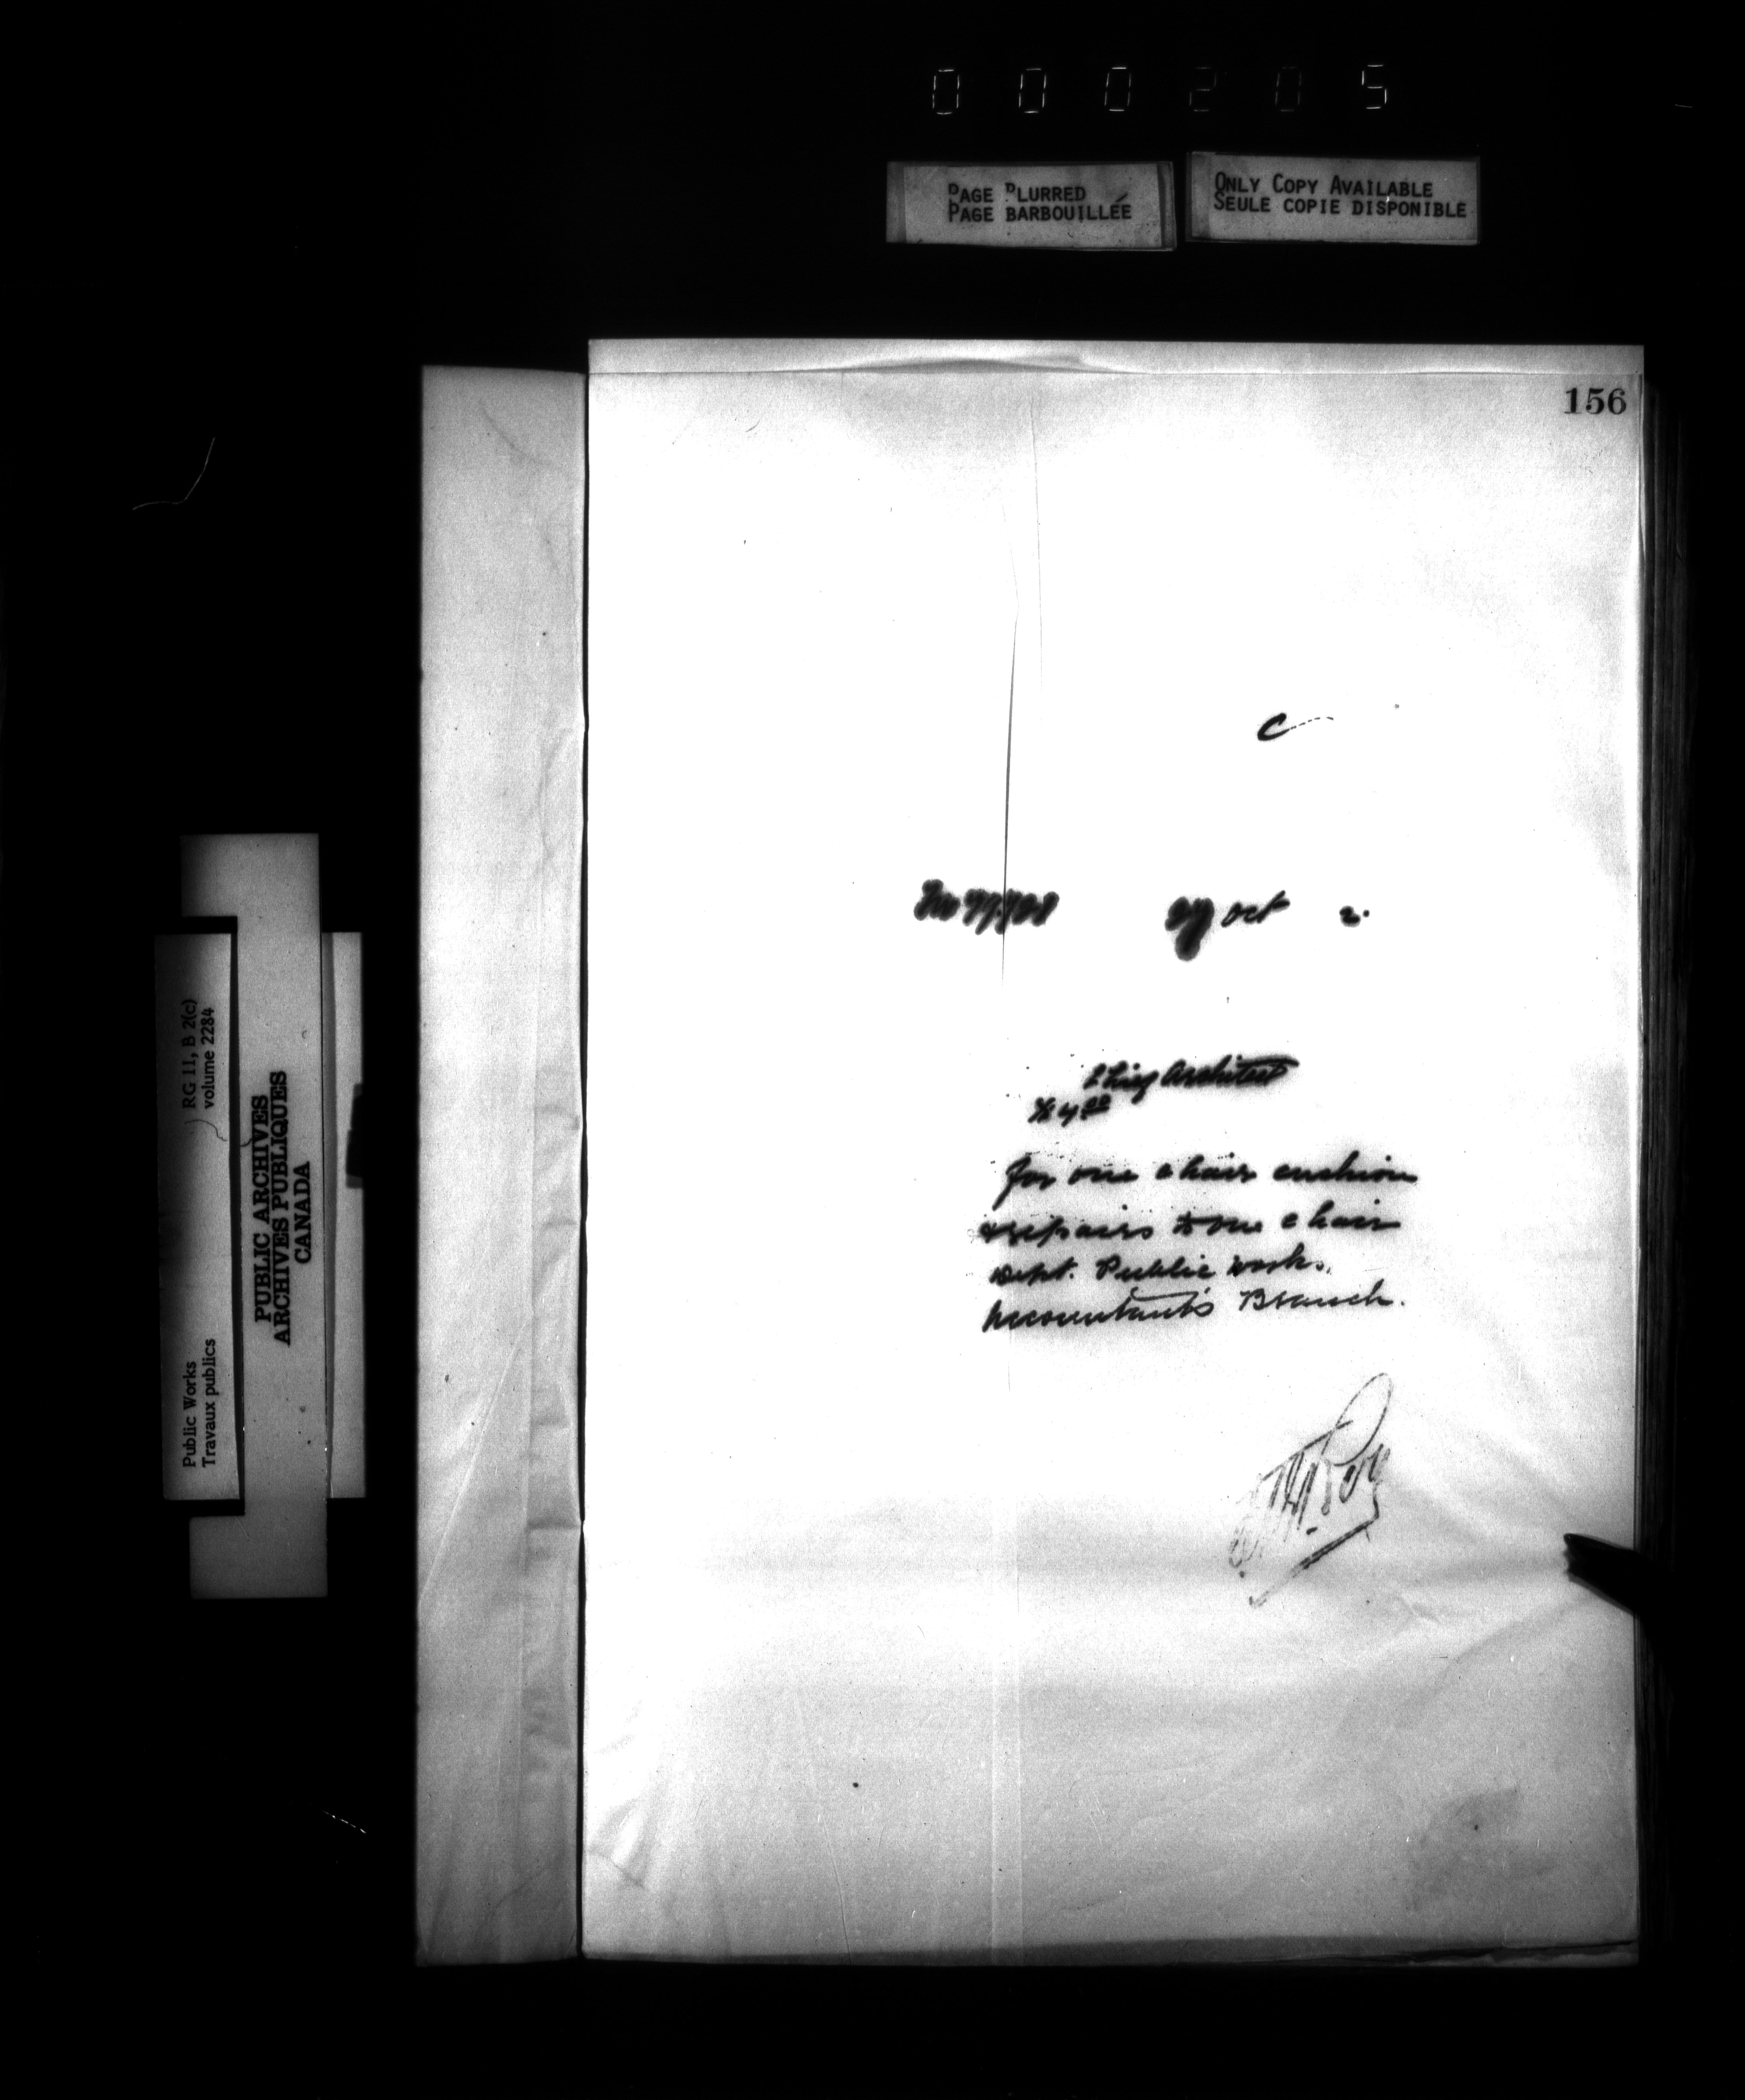 000205
PAGE BLURRED
PAGE BARBOUILLÉE
ONLY COPY AVAILABLE
SEULE COPIE DISPONIBLE
156
C
No oct 2.
Chief Architect
for one chair cushion
& repairs to one chair
Dept. Public Works.
Accountant's Branch.
Roy
Public Works
Travaux publics
RG 11, B 2(c)
volume 2284
PUBLIC ARCHIVES
ARCHIVES PUBLIQUES
CANADA